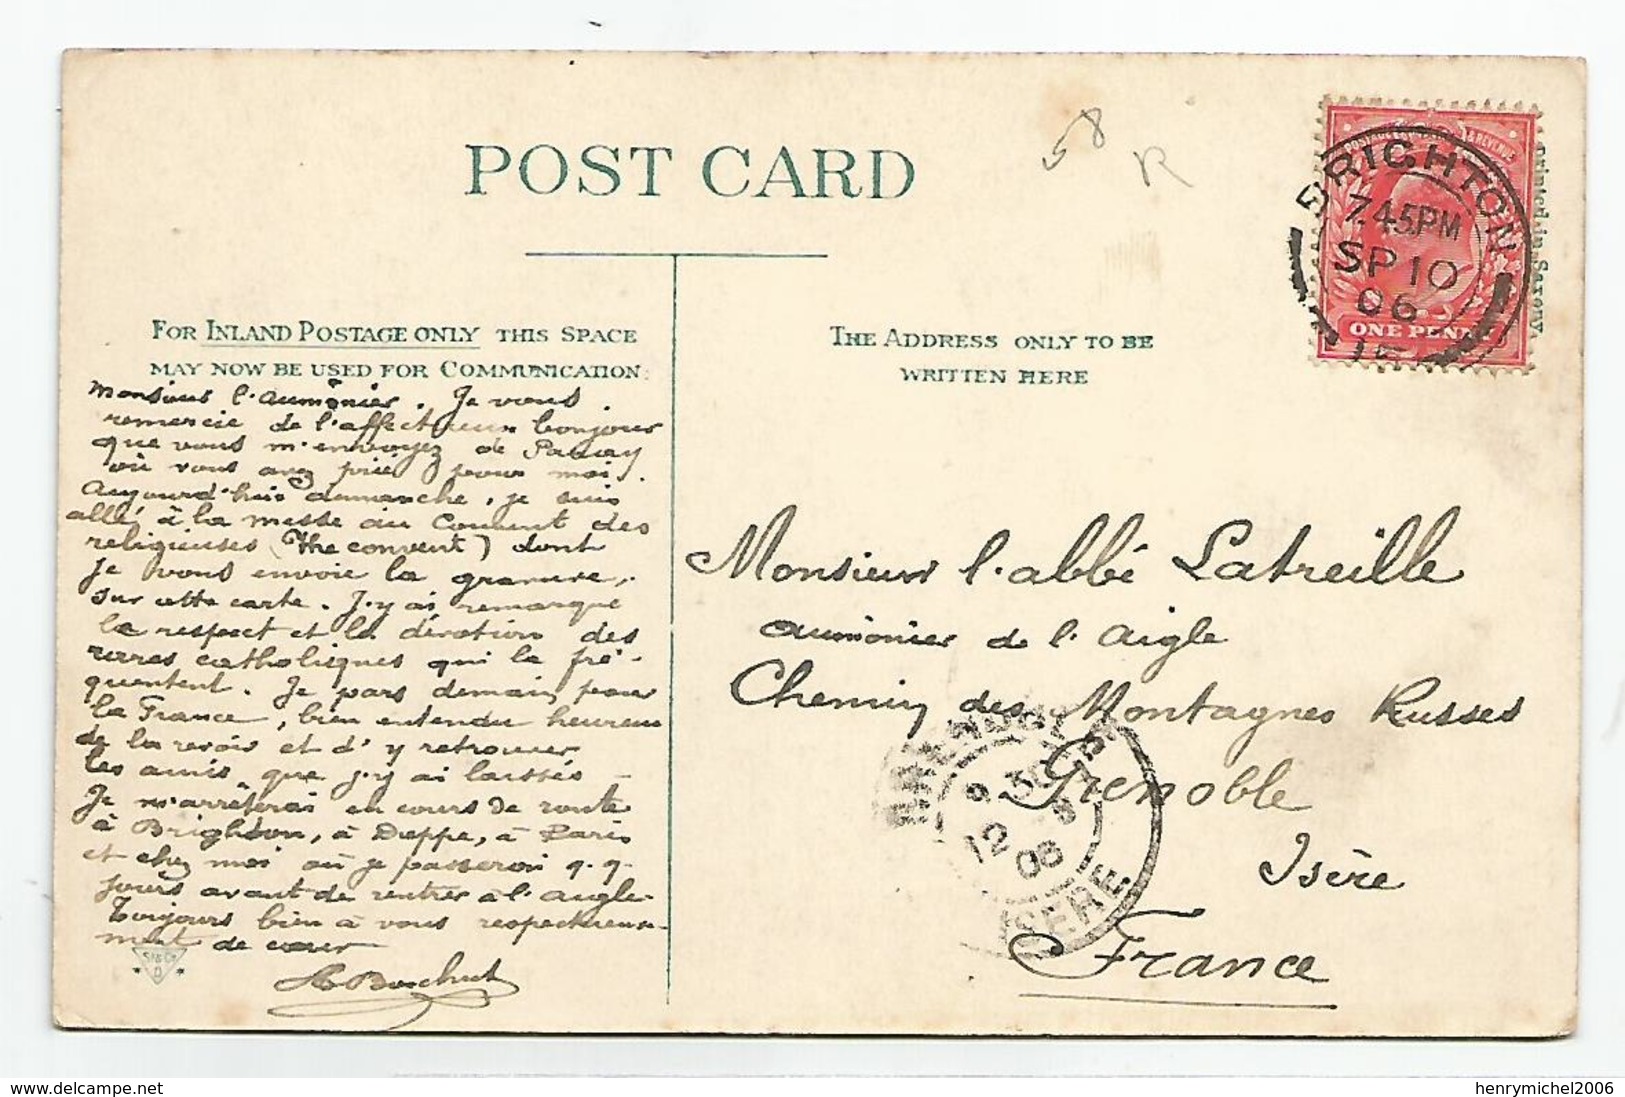 POST CARD
58
R
BRIGHTON
7.45PM
SP 10
06
POSTAGE & REVENUE
ONE PENNY
Printed in Saxony
FOR INLAND POSTAGE ONLY THIS SPACE
MAY NOW BE USED FOR COMMUNICATION.
THE ADDRESS ONLY TO BE
WRITTEN HERE
Monsieur l'aumônier. Je vous
remercie de l'affectueux bonjour
que vous m'envoyez de
où vous avez prié pour moi.
Aujourd'hui dimanche, je suis
allé à la messe au Couvent des
religieuses (the convent) dont
je vous envoie la gravure,
sur cette carte. J'y ai remarqué
le respect et la dévotion des
rares catholiques qui la fré-
quentent. Je pars demain pour
la France, bien entendu heureux
de la revoir et d'y retrouver
les amis que j'y ai laissés -
Je m'arrêterai en cours de route
à Brighton, à Dieppe, à Paris
et chez moi où je passerai q.q.
jours avant de rentrer à l'aigle.
Toujours bien à vous respectueuse-
ment de cœur
Monsieur l'abbé Latreille
aumônier de l'Aigle
Chemin des Montagnes Russes
Grenoble
Isère
France
GRENOBLE
12 - 9
06
ISERE
St & Co
D
henrymichel2006